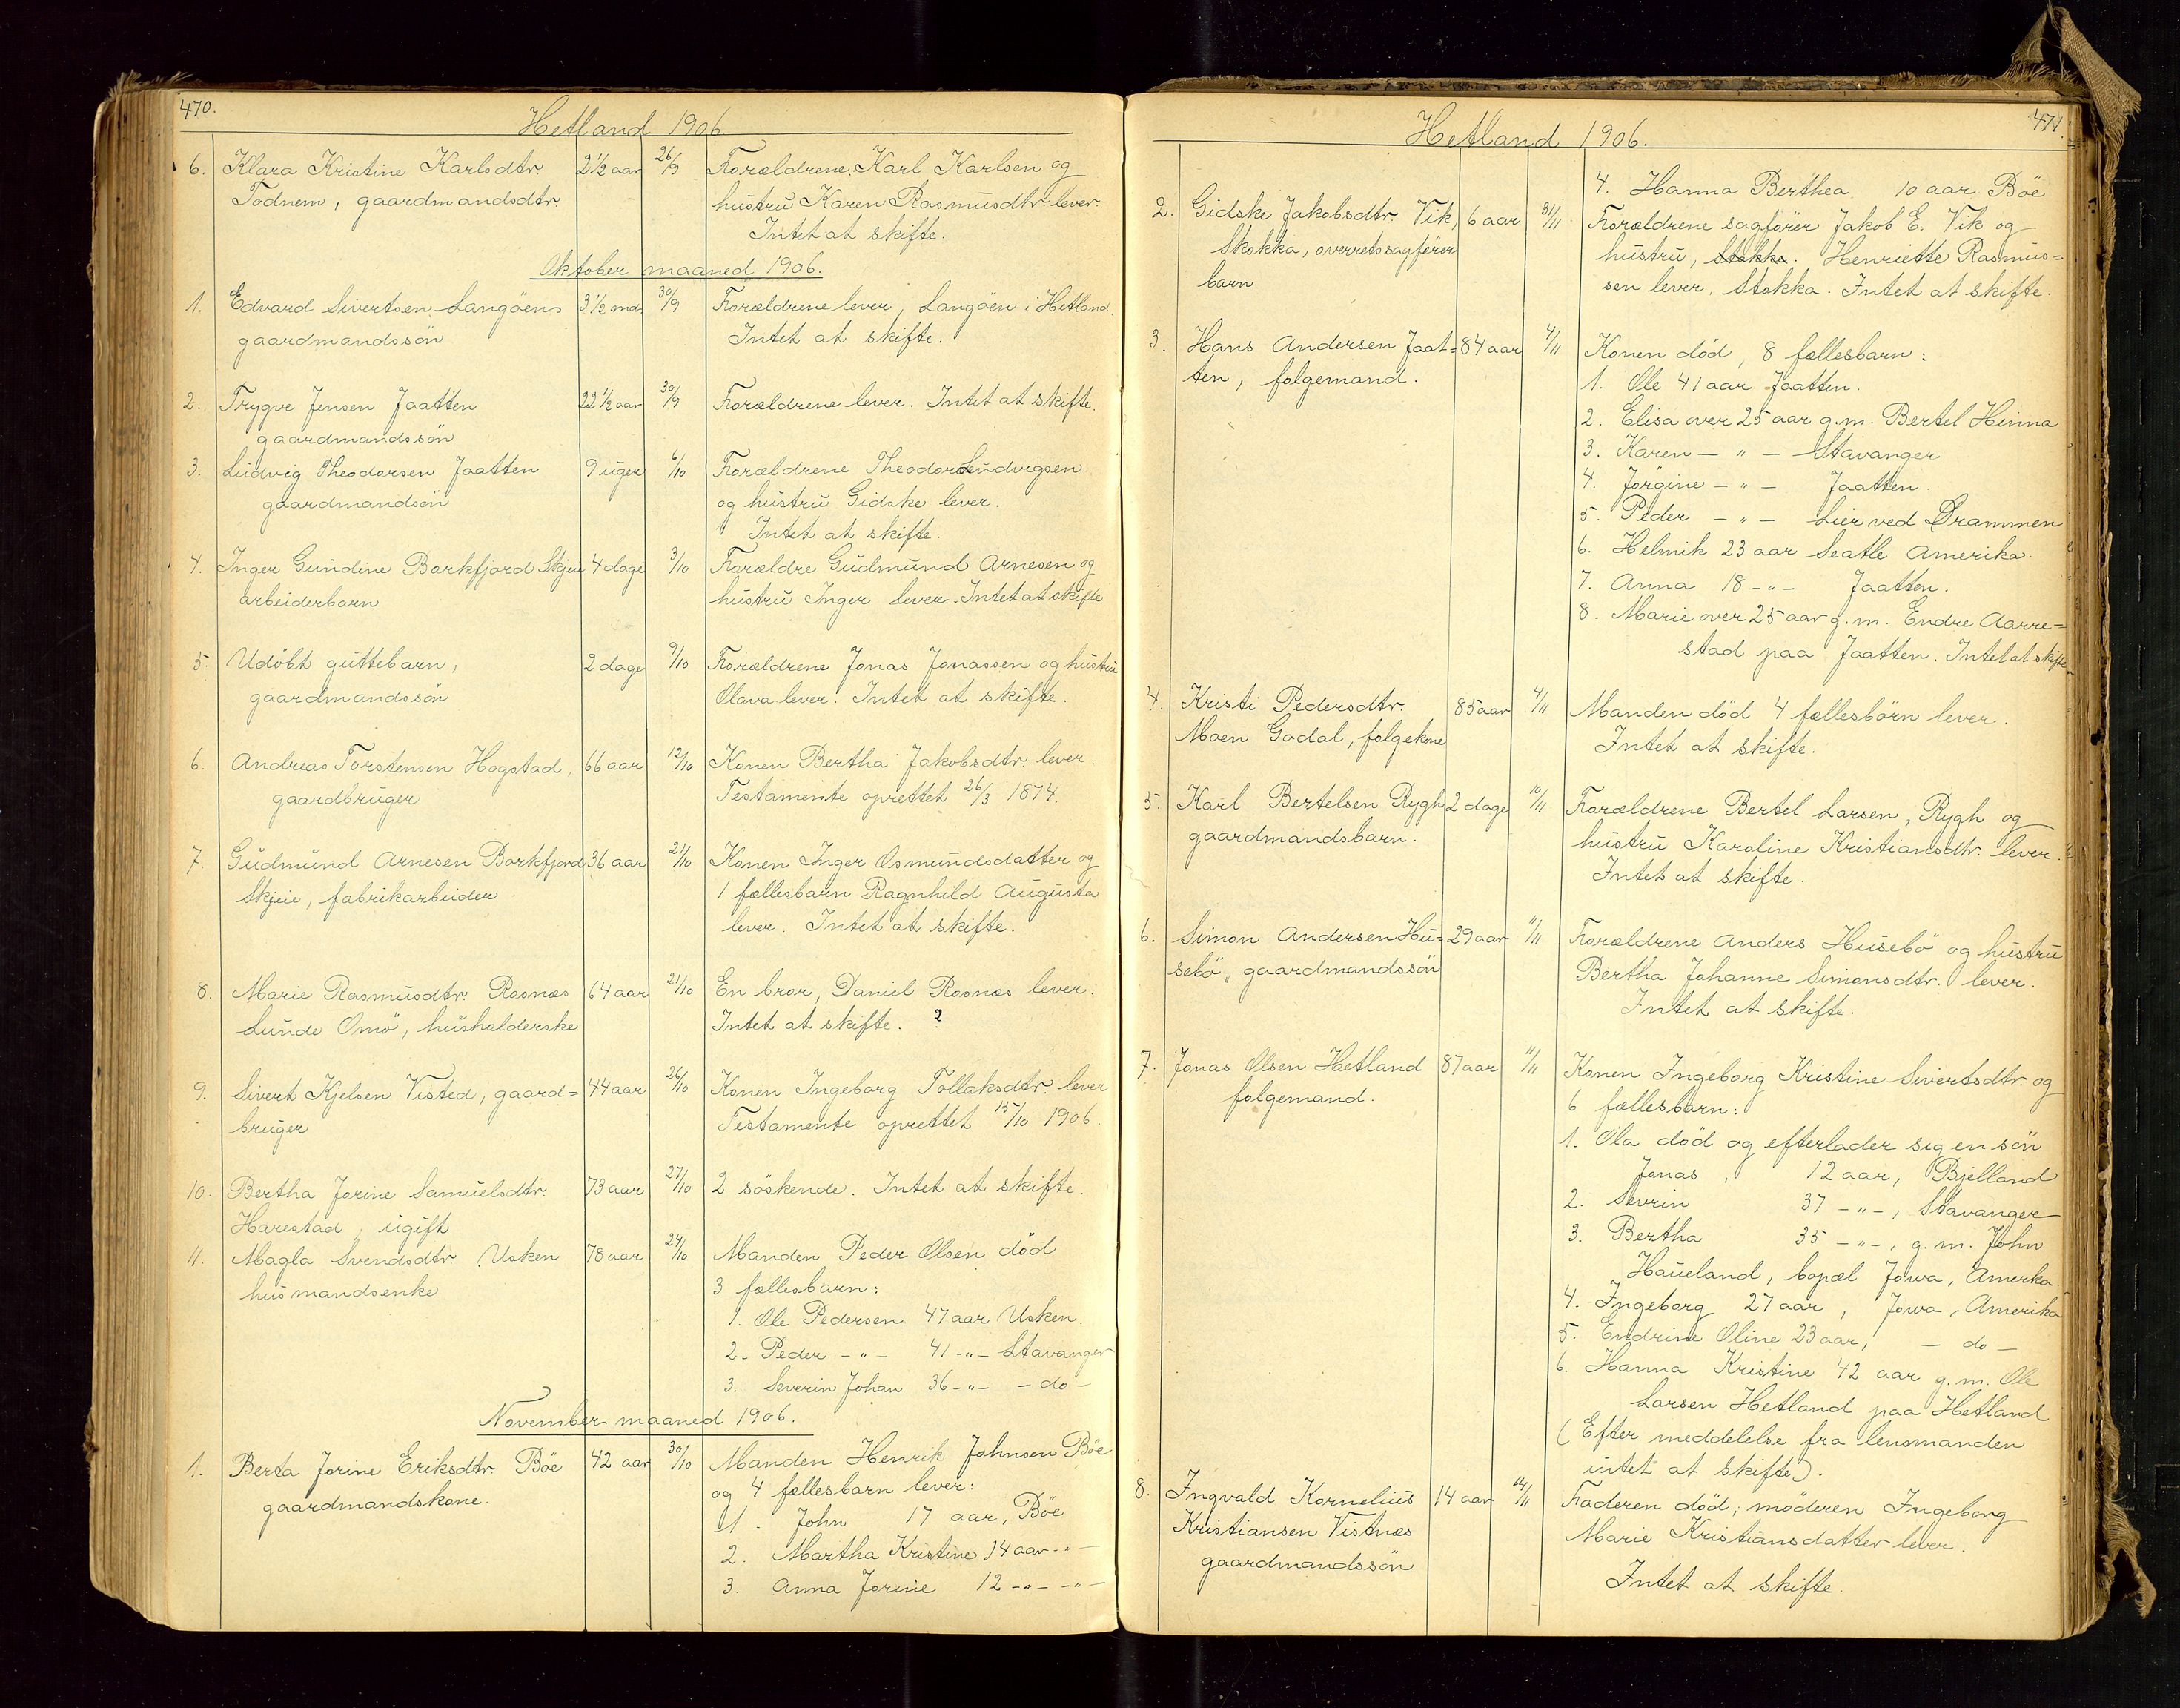 470.
Hetland 1906.
6. Klara Kristine Karlsdtr. 2½ aar 26/9 Forældrene Karl Karlsen og
Todnem, gaardmandsdtr. hustru Karen Rasmusdtr. lever.
Intet at skifte.
Oktober maaned 1906.
1. Edvard Sivertsen Langöen 3½ md. 30/9 Forældrene lever, Langöen i Hetland.
gaardmandssön Intet at skifte.
2. Trygve Jensen Jaatten 22½ aar 30/9 Forældrene lever. Intet at skifte.
gaardmandssön
3. Ludvig Theodorsen Jaatten 9 uger 6/10 Forældrene Theodor Ludvigsen
gaardmandsön og hustru Gidske lever.
Intet at skifte.
4. Inger Gundine Borkfjord Skjeie 4 dage 3/10 Forældre Gudmund Arnesen og
arbeiderbarn hustru Inger lever. Intet at skifte
5. Udöbt guttebarn, 2 dage 9/10 Forældrene Jonas Jonassen og hustru
gaardmandssön Olava lever. Intet at skifte.
6. Andreas Torstensen Hogstad, 66 aar 12/10 Konen Bertha Jakobsdtr. lever.
gaardbruger Testamente oprettet 26/3 1874.
7. Gudmund Arnesen Borkfjord 36 aar 21/10 Konen Inger Osmundsdatter og
Skjeie, fabrikarbeider 1 fællesbarn Ragnhild Augusta
lever. Intet at skifte.
8. Marie Rasmusdtr. Rosnæs 64 aar 21/10 En bror, Daniel Rosnæs lever.
Lunde Omö, husholderske Intet at skifte. ?
9. Sivert Kjelsen Visted, gaard= 44 aar 26/10 Konen Ingeborg Tollaksdtr. lever
bruger Testamente oprettet 15/10 1906.
10. Bertha Jorine Samuelsdtr. 73 aar 27/10 2 söskende. Intet at skifte.
Harestad, ugift
11. Magla Svendsdtr. Usken 78 aar 24/10 Manden Peder Olsen död
husmandsenke 3 fællesbarn:
1. Ole Pedersen 47 aar Usken.
2. Peder -"- 41 -"- Stavanger
3. Severin Johan 36 -"- - do -
November maaned 1906.
1. Berta Jorine Eriksdtr. Böe 42 aar 30/10 Manden Henrik Johnsen Böe
gaardmandskone. og 4 fællesbarn lever:
1. John 17 aar, Böe
2. Martha Kristine 14 aar -"-
3. Anna Jorine 12 -"- -"-
471.
Hetland 1906.
4. Hanna Berthea 10 aar Böe
2. Gidske Jakobsdtr. Vik, 6 aar 31/11 Forældrene sagförer Jakob E. Vik og
Skokka, overretssagförer hustru, Stokka. Henriette Rasmus=
barn sen lever. Stokka. Intet at skifte.
3. Hans Andersen Jaat= 84 aar 4/11 Konen död, 8 fællesbarn:
ten, folgemand. 1. Ole 41 aar Jaatten.
2. Elisa over 25 aar g.m. Bertel Hinna
3. Karen -"- Stavanger
4. Jörgine -"- Jaatten
5. Peder -"- Lier ved Drammen
6. Helmik 23 aar Seatle Amerika.
7. Anna 18 -"- Jaatten.
8. Marie over 25 aar g.m. Endre Aarre=
stad paa Jaatten. Intet at skifte
4. Kristi Pedersdtr. 85 aar 4/11 Manden död 4 fællesbörn lever.
Moen Godal, folgekone Intet at skifte.
5. Karl Bertelsen Rygh 2 dage 10/11 Forældrene Bertel Larsen, Rygh og
gaardmandsbarn. hustru Karoline Kristiansdtr. lever.
Intet at skifte.
6. Simon Andersen Hu= 29 aar 11/11 Forældrene Anders Husebö og hustru
sebö, gaardmandssön Bertha Johanne Simonsdtr. lever.
Intet at skifte.
7. Jonas Olsen Hetland 87 aar 11/11 Konen Ingeborg Kristine Sivertsdtr. og
folgemand. 6 fællesbarn:
1. Ola död og efterlader sig en sön
Jonas, 12 aar, Bjelland
2. Sevrin 37 -"-, Stavanger
3. Bertha 35 -"-, g.m. John
Haueland, bopæl Jowa, Amerka
4. Ingeborg 27 aar, Jowa, Amerika
5. Endrine Oline 23 aar, - do -
6. Hanna Kristine 42 aar g.m. Ole
Larsen Hetland paa Hetland
(Efter meddelelse fra lensmanden
intet at skifte).
8. Ingvald Kornelius 14 aar 14/11 Faderen död, möderen Ingeborg
Kristiansen Vistnæs Marie Kristiansdatter lever.
gaardmandssön Intet at skifte.